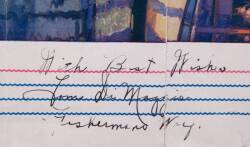 With Best Wishes
Tom DiMaggio
Fishermans W'y.